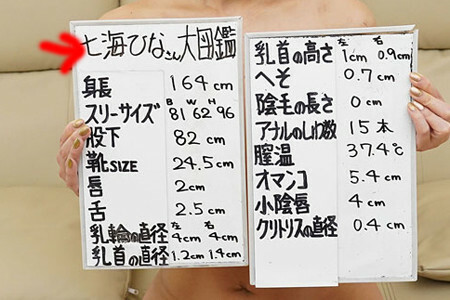 七海ひなさん大図鑑
身長 164cm
スリーサイズ B81 W62 H96
股下 82cm
靴SIZE 24.5cm
唇 2cm
舌 2.5cm
乳輪の直径 左4cm 右4cm
乳首の直径 1.2cm 1.4cm
乳首の高さ 左1cm 右0.9cm
へそ 0.7cm
陰毛の長さ 0cm
アナルのしわ数 15本
膣温 37.4℃
オマンコ 5.4cm
小陰唇 4cm
クリトリスの直径 0.4cm